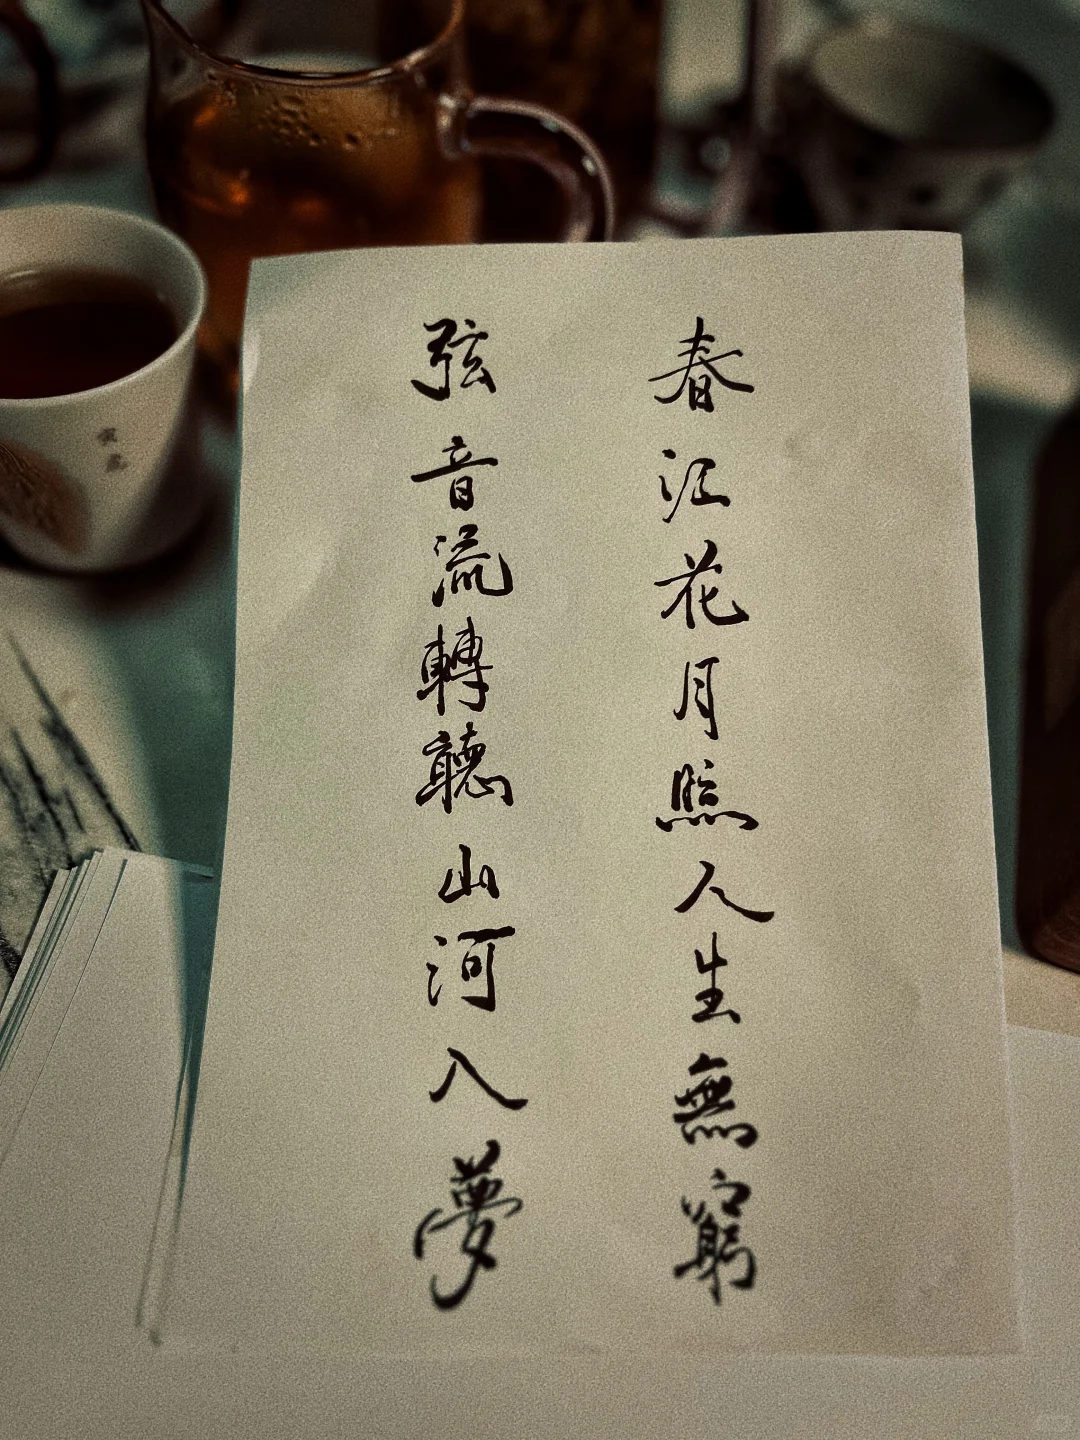 春江花月照人生無窮
弦音流轉聽山河入夢